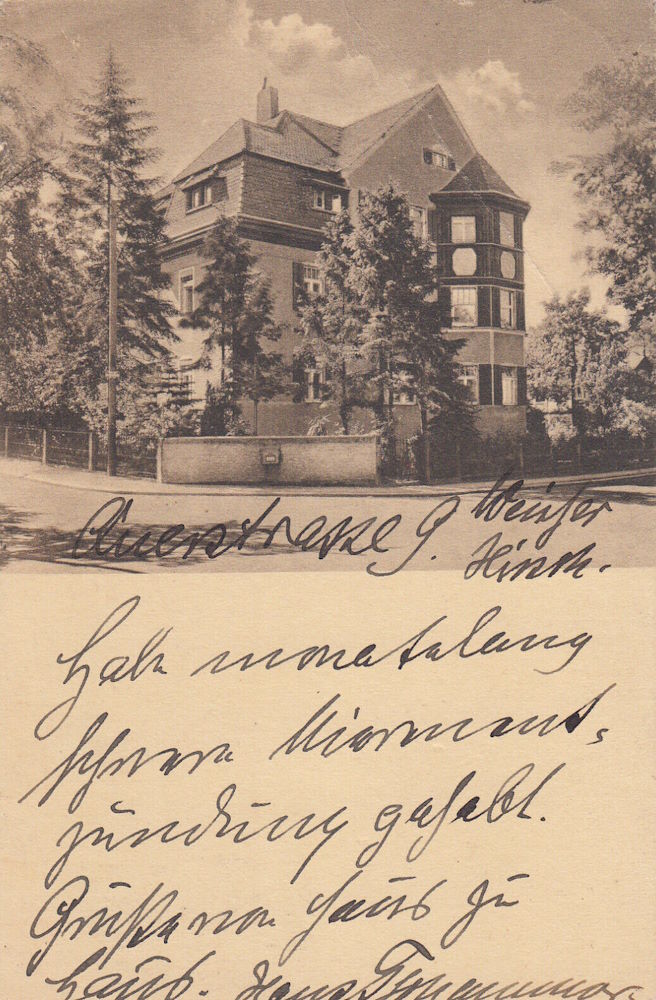 Querstrasse 9. Weißer
Hirsch.
Habe monatelang
schwere Nierenent-
zündung gehabt.
Grüße von Haus zu
Haus. Hans